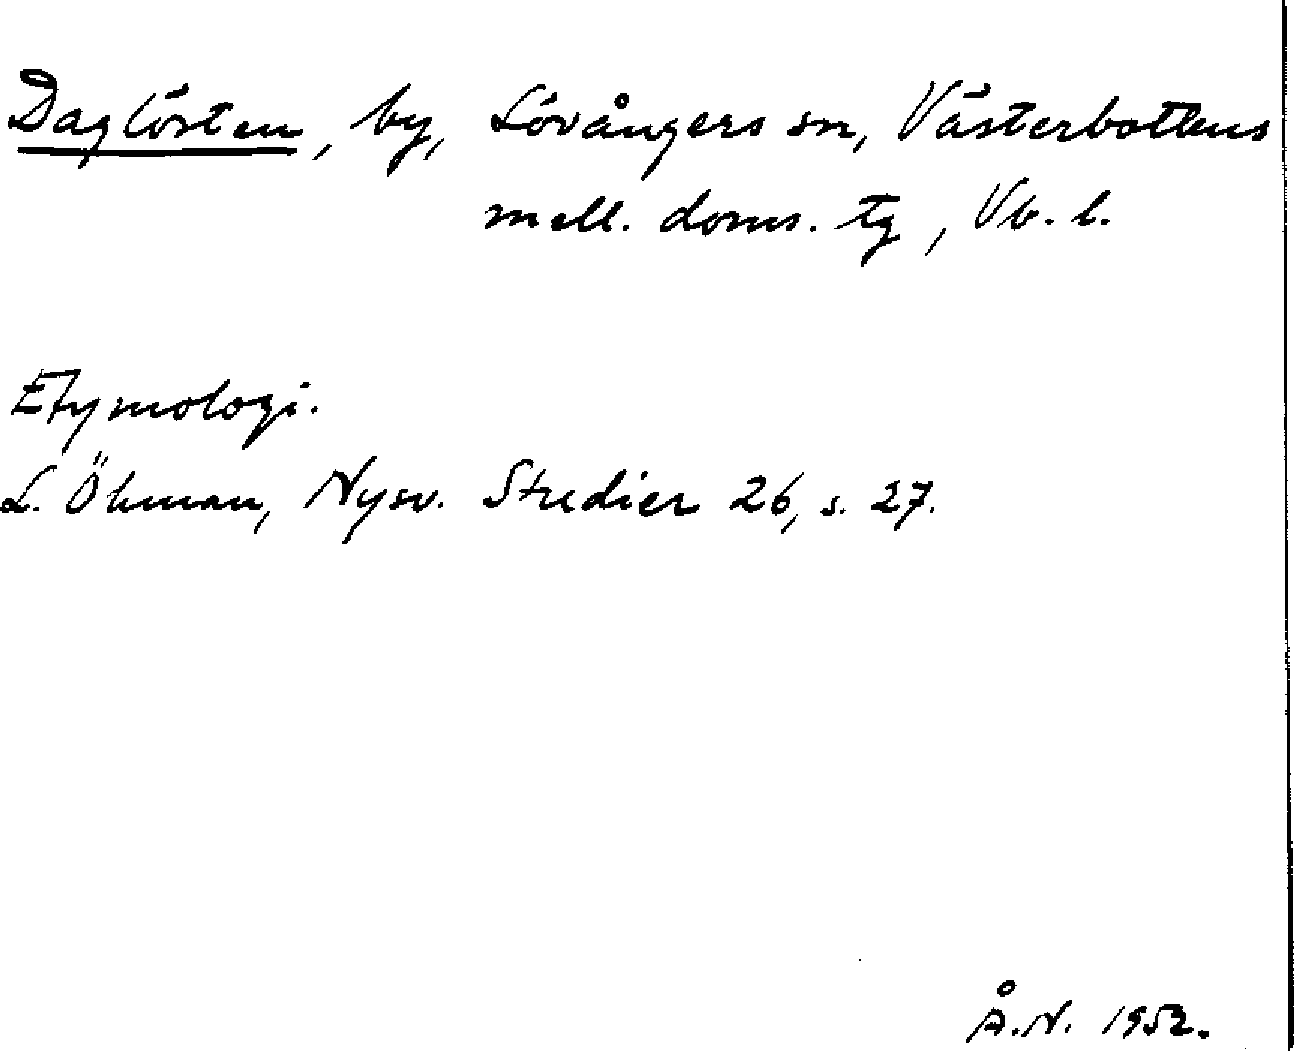 Daglösten, by, Lövångers sn, Västerbottens
mell. doms. tg, Vb. l.
Etymologi.
L. Öhman, Nysv. Studier 26, s. 27.
Å.N. 1952.